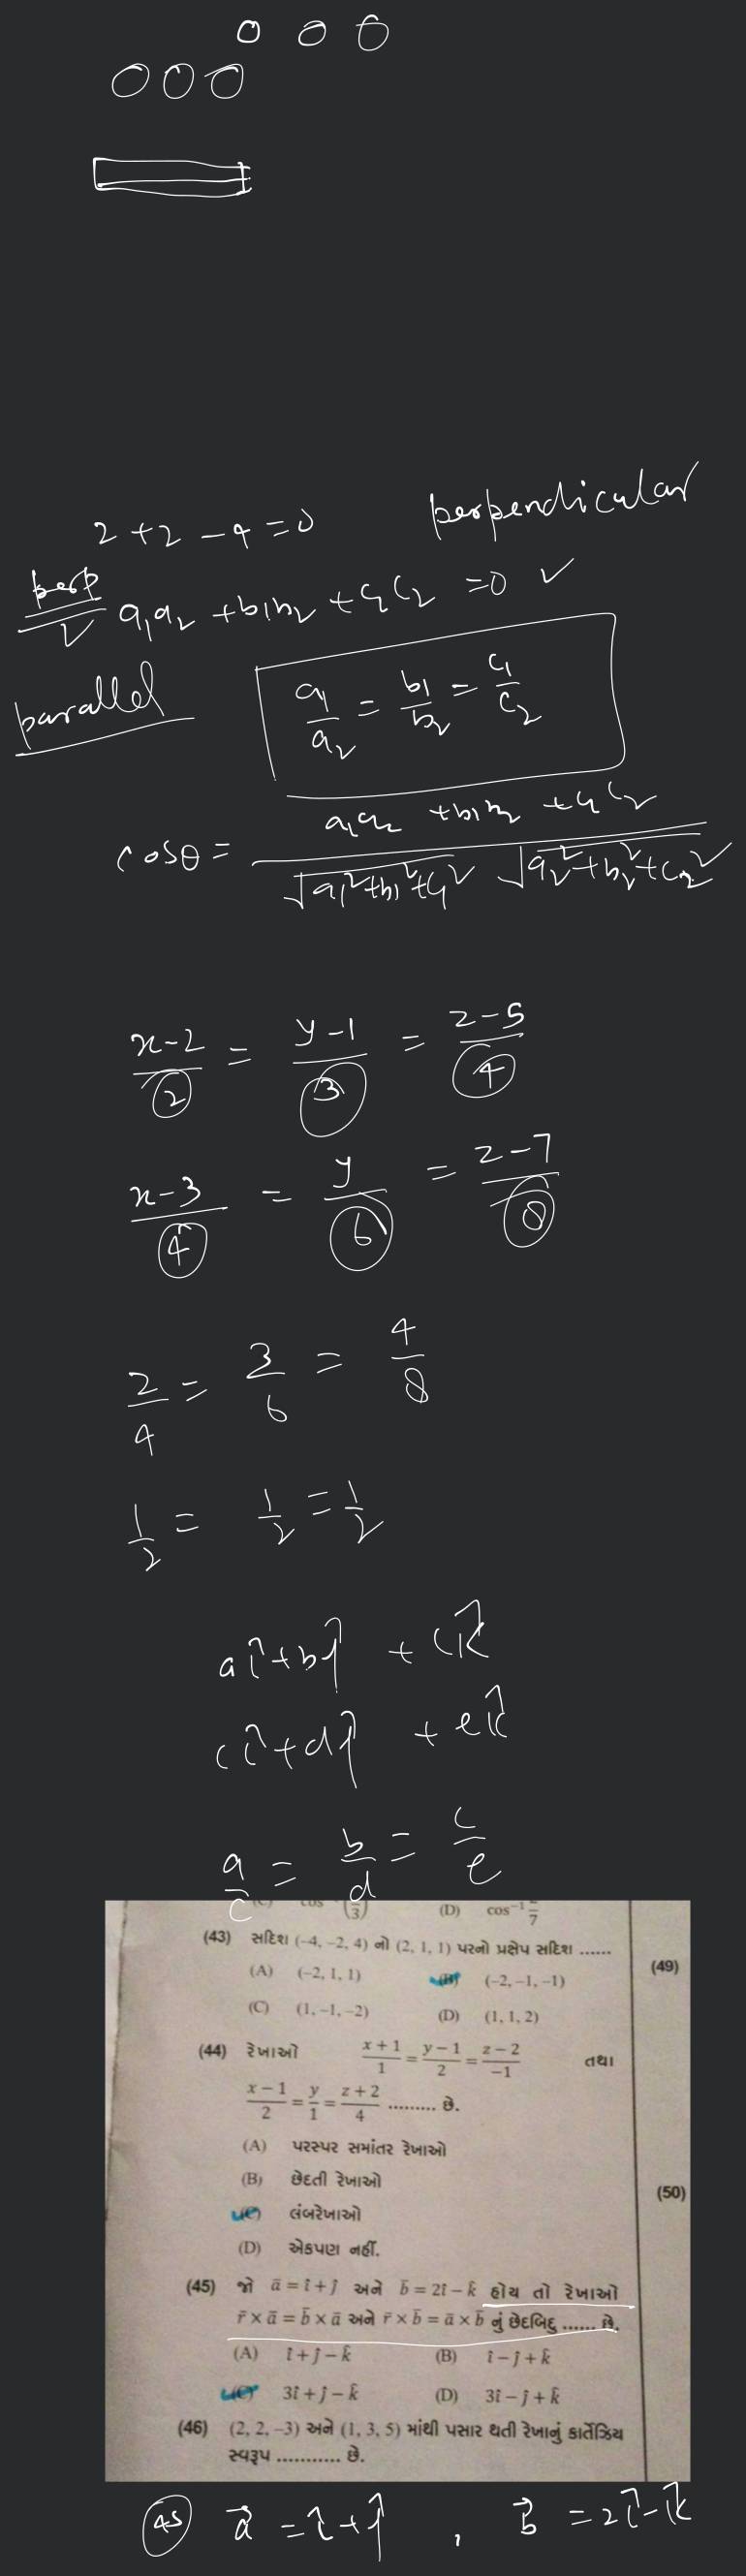 2 + 2 - 4 = 0 perpendicular
perp a₁a₂ + b₁b₂ + c₁c₂ = 0 ✓
parallel a₁/a₂ = b₁/b₂ = c₁/c₂
cosθ = (a₁a₂ + b₁b₂ + c₁c₂) / (√(a₁²+b₁²+c₁²) √(a₂²+b₂²+c₂²))
(x-2)/2 = (y-1)/3 = (z-5)/4
(x-3)/4 = y/6 = (z-7)/8
2/4 = 3/6 = 4/8
1/2 = 1/2 = 1/2
aî + bĵ + ck̂
cî + dĵ + ek̂
a/c = b/d = c/e
(D) cos⁻¹ /7
(43) સદિશ (-4, -2, 4) નો (2, 1, 1) પરનો પ્રક્ષેપ સદિશ ......
(A) (-2, 1, 1) (B) (-2, -1, -1)
(C) (1, -1, -2) (D) (1, 1, 2)
(49)
(44) રેખાઓ (x+1)/1 = (y-1)/2 = (z-2)/-1 તથા
(x-1)/2 = y/1 = (z+2)/4 ......... છે.
(A) પરસ્પર સમાંતર રેખાઓ
(B) છેદતી રેખાઓ
(50)
(C) લંબરેખાઓ
(D) એકપણ નહીં.
(45) જો ā = î + ĵ અને b̄ = 2î - k̂ હોય તો રેખાઓ
r̄ × ā = b̄ × ā અને r̄ × b̄ = ā × b̄ નું છેદબિંદુ ...... છે.
(A) î + ĵ - k̂ (B) î - ĵ + k̂
(C) 3î + ĵ - k̂ (D) 3î - ĵ + k̂
(46) (2, 2, -3) અને (1, 3, 5) માંથી પસાર થતી રેખાનું કાર્તેઝિય
સ્વરૂપ ........... છે.
(45) a⃗ = î + ĵ , b⃗ = 2î - k̂